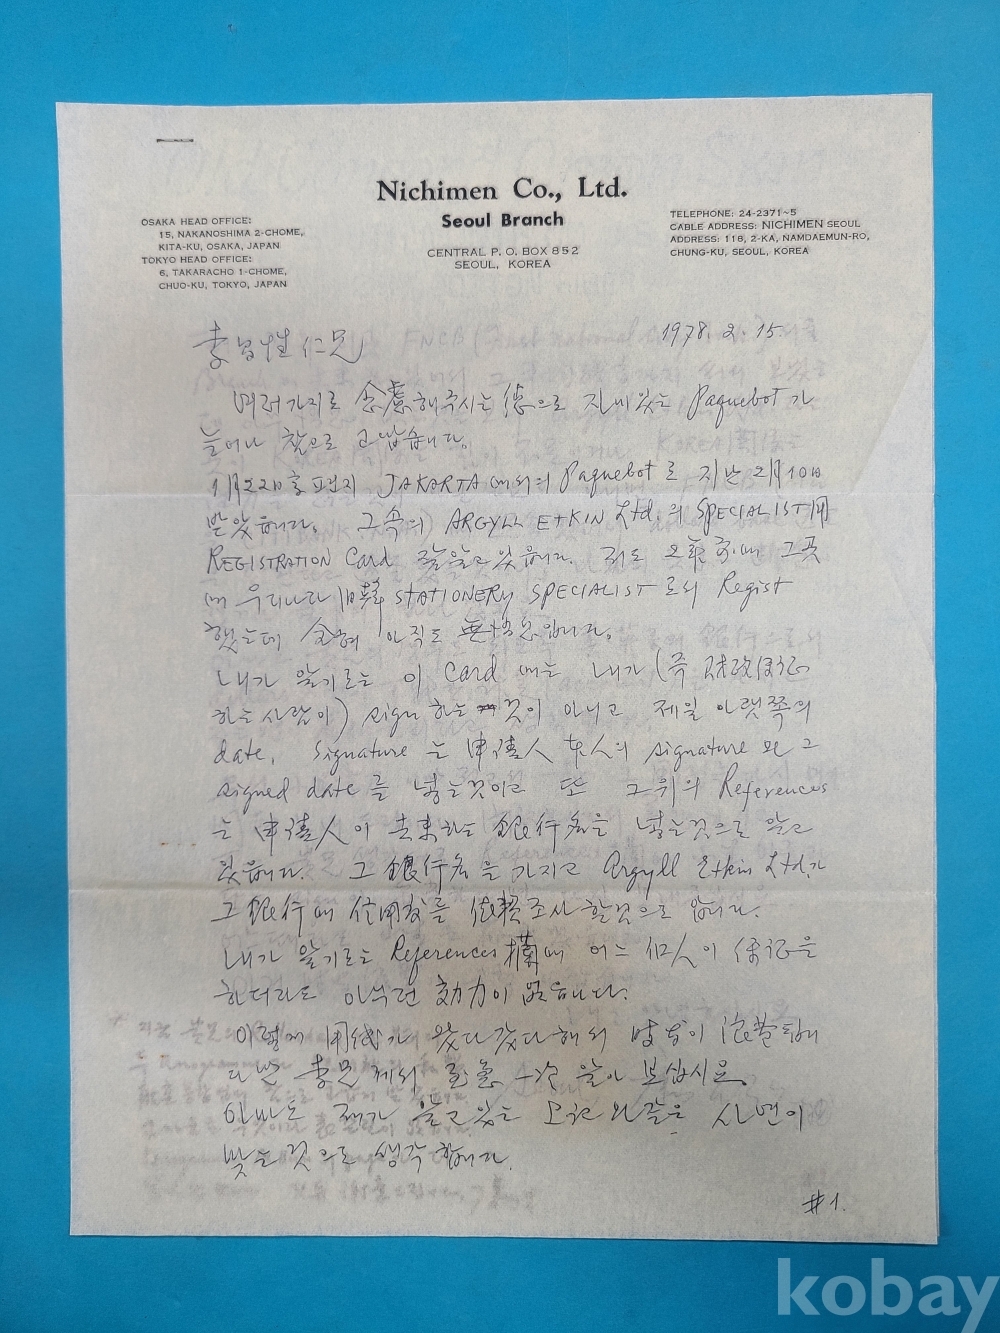 Nichimen Co., Ltd.
Seoul Branch
CENTRAL P. O. BOX 852
SEOUL, KOREA
OSAKA HEAD OFFICE:
15, NAKANOSHIMA 2-CHOME,
KITA-KU, OSAKA, JAPAN
TOKYO HEAD OFFICE:
6, TAKARACHO 1-CHOME,
CHUO-KU, TOKYO, JAPAN
TELEPHONE: 24-2371~5
CABLE ADDRESS: NICHIMEN SEOUL
ADDRESS: 118, 2-KA, NAMDAEMUN-RO,
CHUNG-KU, SEOUL, KOREA
1978. 2. 15.
李昌性 仁兄
여러가지로 念慮해주시는 德으로 재미있는 Paquebot가
늘어나 참으로 고맙습니다.
1月22日字 편지 JAKARTA에서의 Paquebot로 지난 2月10日
받았읍니다. 그속의 ARGYLL ETKIN Ltd.의 SPECIALIST用
REGISTRATION Card 잘알고 있읍니다. 저도 그곳
에 우리나라 旧韓 STATIONERY SPECIALIST로서 Regist
했는데 아직도 無消息입니다.
내가 알기로는 이 Card에는 내가 (즉 財政保証
하는 사람이) sign하는 것이 아니고 제일 아랫쪽의
date, signature는 申請人 本人의 signature와 그
signed date를 넣는것이고 또 그위의 References
는 申請人이 去来하는 銀行名을 넣는것으로 알고
있읍니다. 그 銀行名을 가지고 Argyll Etkin Ltd.가
그 銀行에 信用度를 依賴조사 할것으로 압니다.
내가 알기로는 References 欄에 어느 個人이 保証을
하더라도 아무런 効力이 없읍니다.
이렇게 用紙가 왔다갔다해서 時日이 浪費되나
다만 李兄께서 至急 一次 알아 보십시요.
제가 알고 있는 上記와같은 사연이
맞는것으로 생각합니다.
#1.
kobay